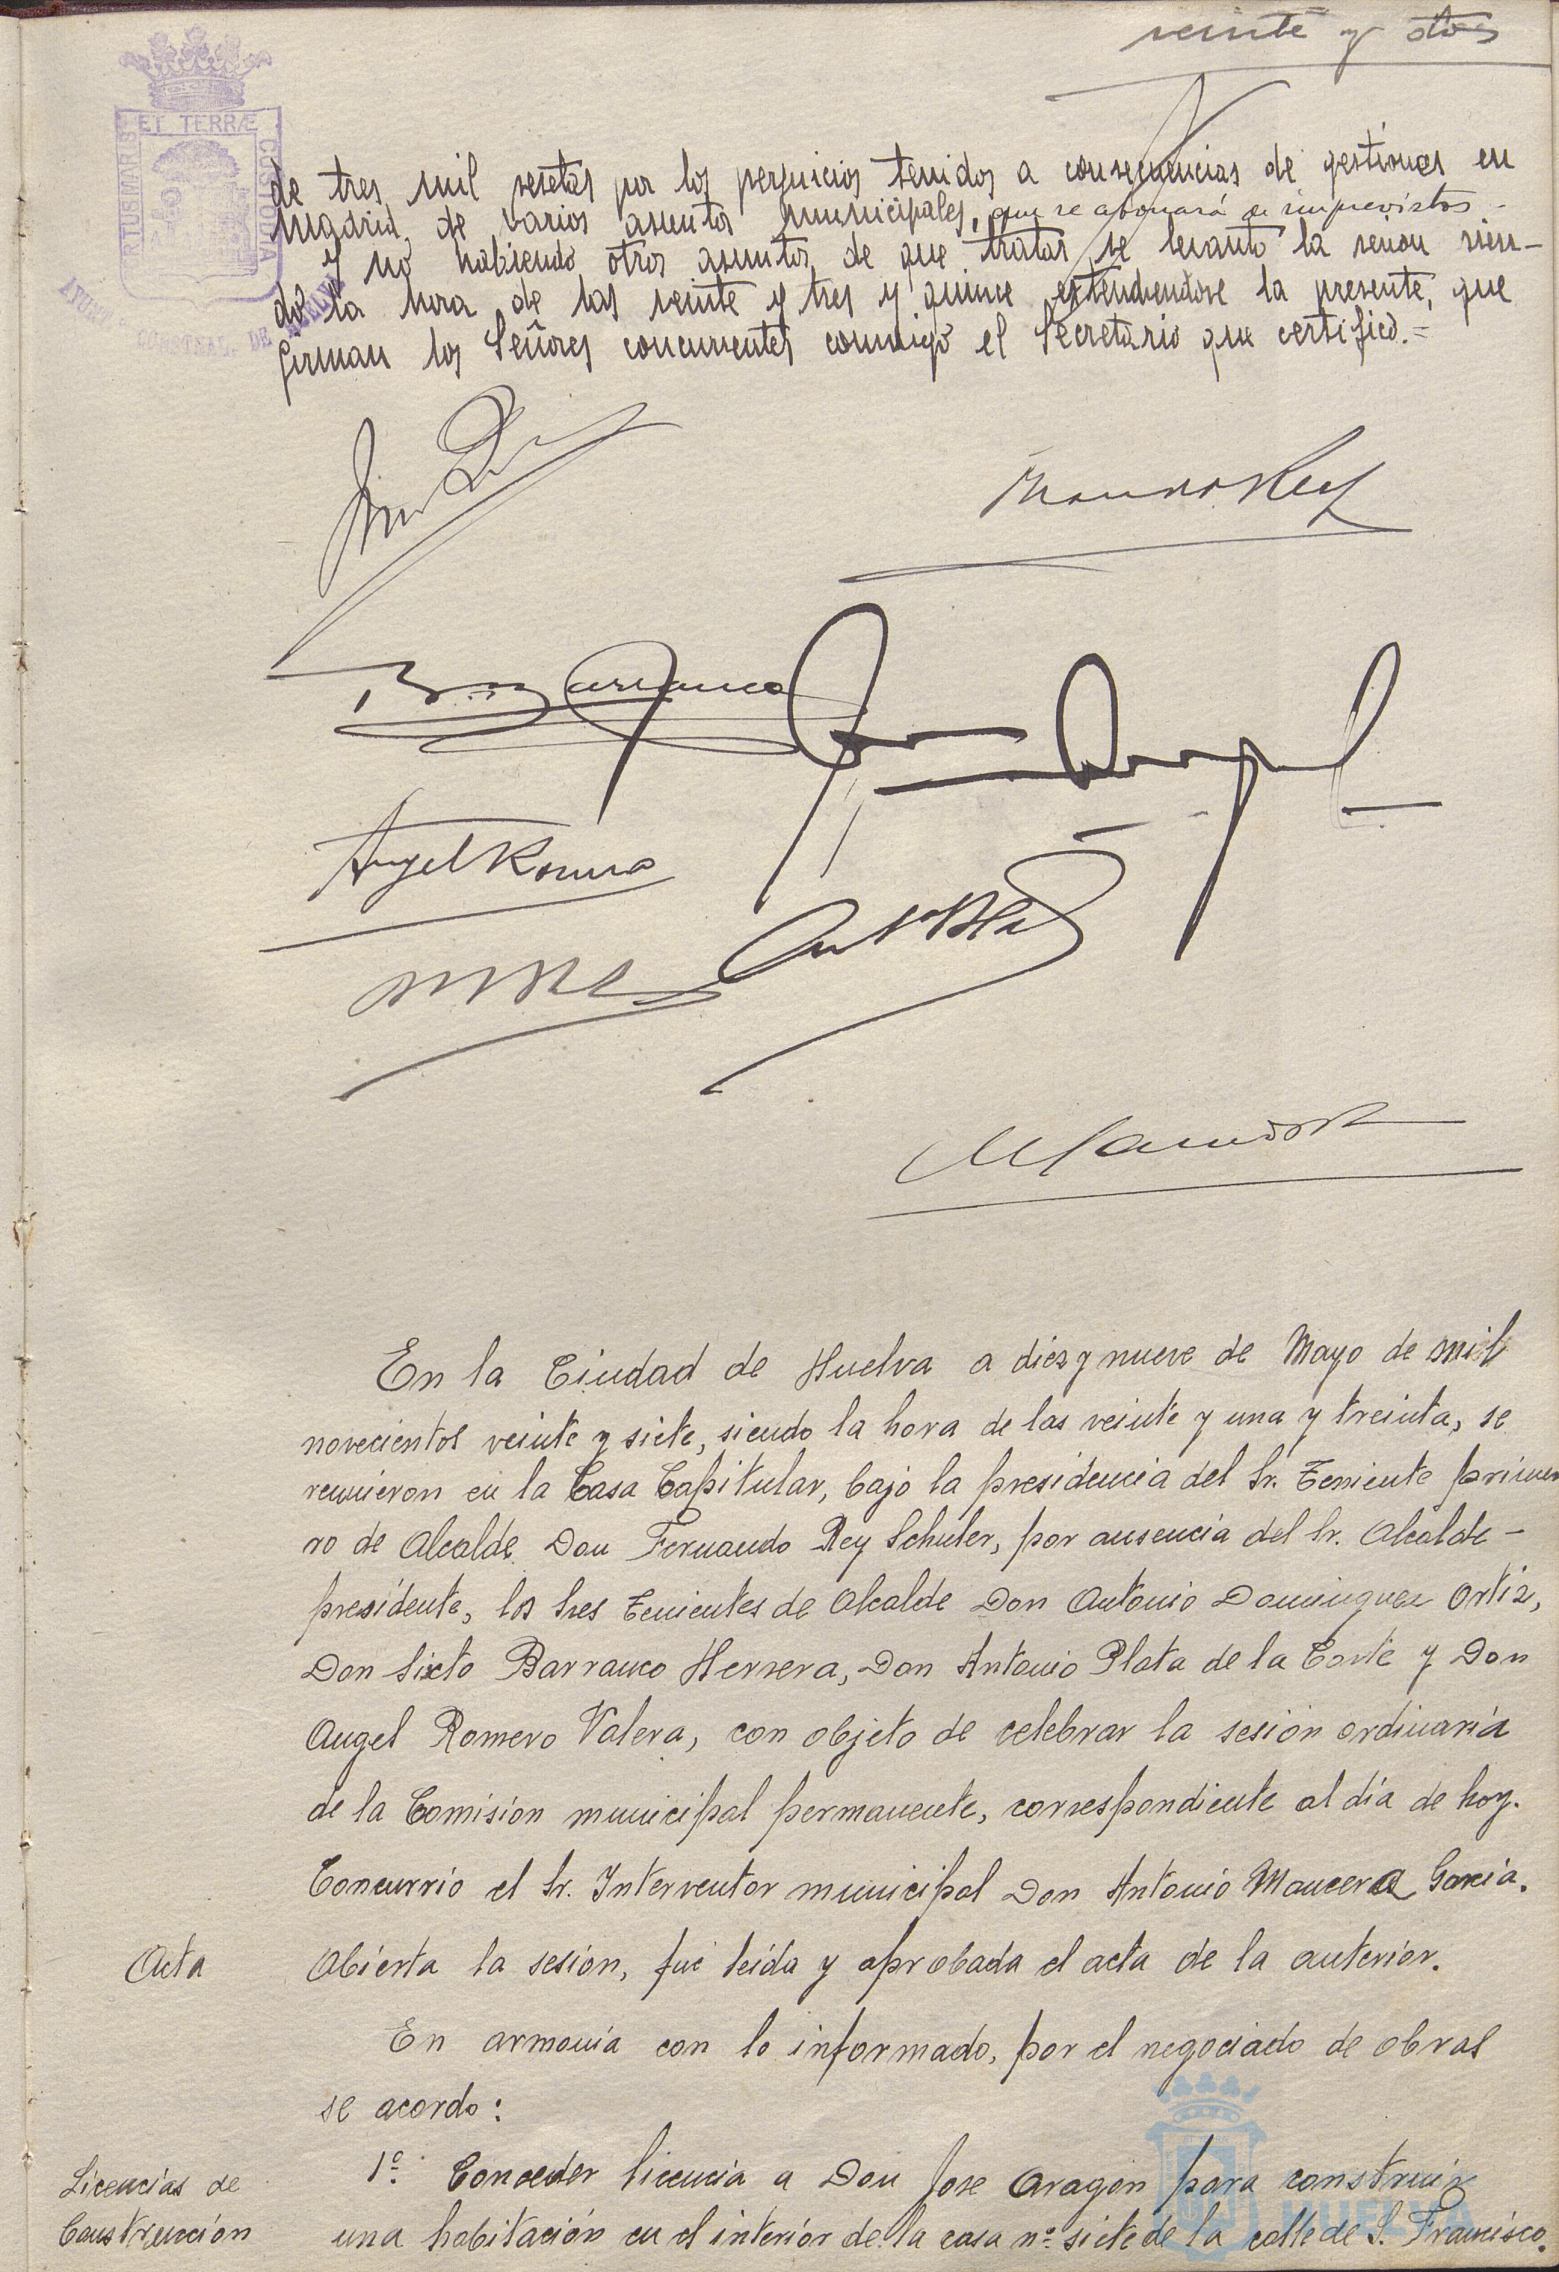 veinte y dos
ET TERRÆ
CUSTODIA
de tres mil pesetas por los perjuicios tenidos a consecuencias de gestiones en
Madrid, de varios asuntos municipales, que se abonará de imprevistos.-
Y no habiendo otros asuntos de que tratar se levanto la sesion sien-
do la hora de las veinte y tres y quince extendiendose la presente, que
firman los Señores concurrentes conmigo el Secretario que certifico.=
Barranco
Angel Romero
En la Ciudad de Huelva a diez y nueve de Mayo de mil
novecientos veinte y siete, siendo la hora de las veinte y una y treinta, se
reunieron en la Casa Capitular, bajo la presidencia del Sr. Teniente prime
ro de Alcalde Don Fernando Rey Schuler, por ausencia del Sr. Alcalde-
presidente, los Sres Tenientes de Alcalde Don Antonio Dominguez Ortiz,
Don Sixto Barranco Herrera, Don Antonio Plata de la Corte y Don
Angel Romero Valera, con objeto de celebrar la sesión ordinaria
de la Comisión municipal permanente, correspondiente al día de hoy.
Concurrio el Sr. Interventor municipal Don Antonio Mancera Garcia.
Acta
Abierta la sesión, fué leida y aprobada el acta de la anterior.
En armonia con lo informado, por el negociado de obras
se acordo:
Licencias de
Construcción
1º. Conceder licencia a Don Jose Aragon para construir
una habitación en el interior de la casa nº siete de la calle de S. Francisco.
HUELVA